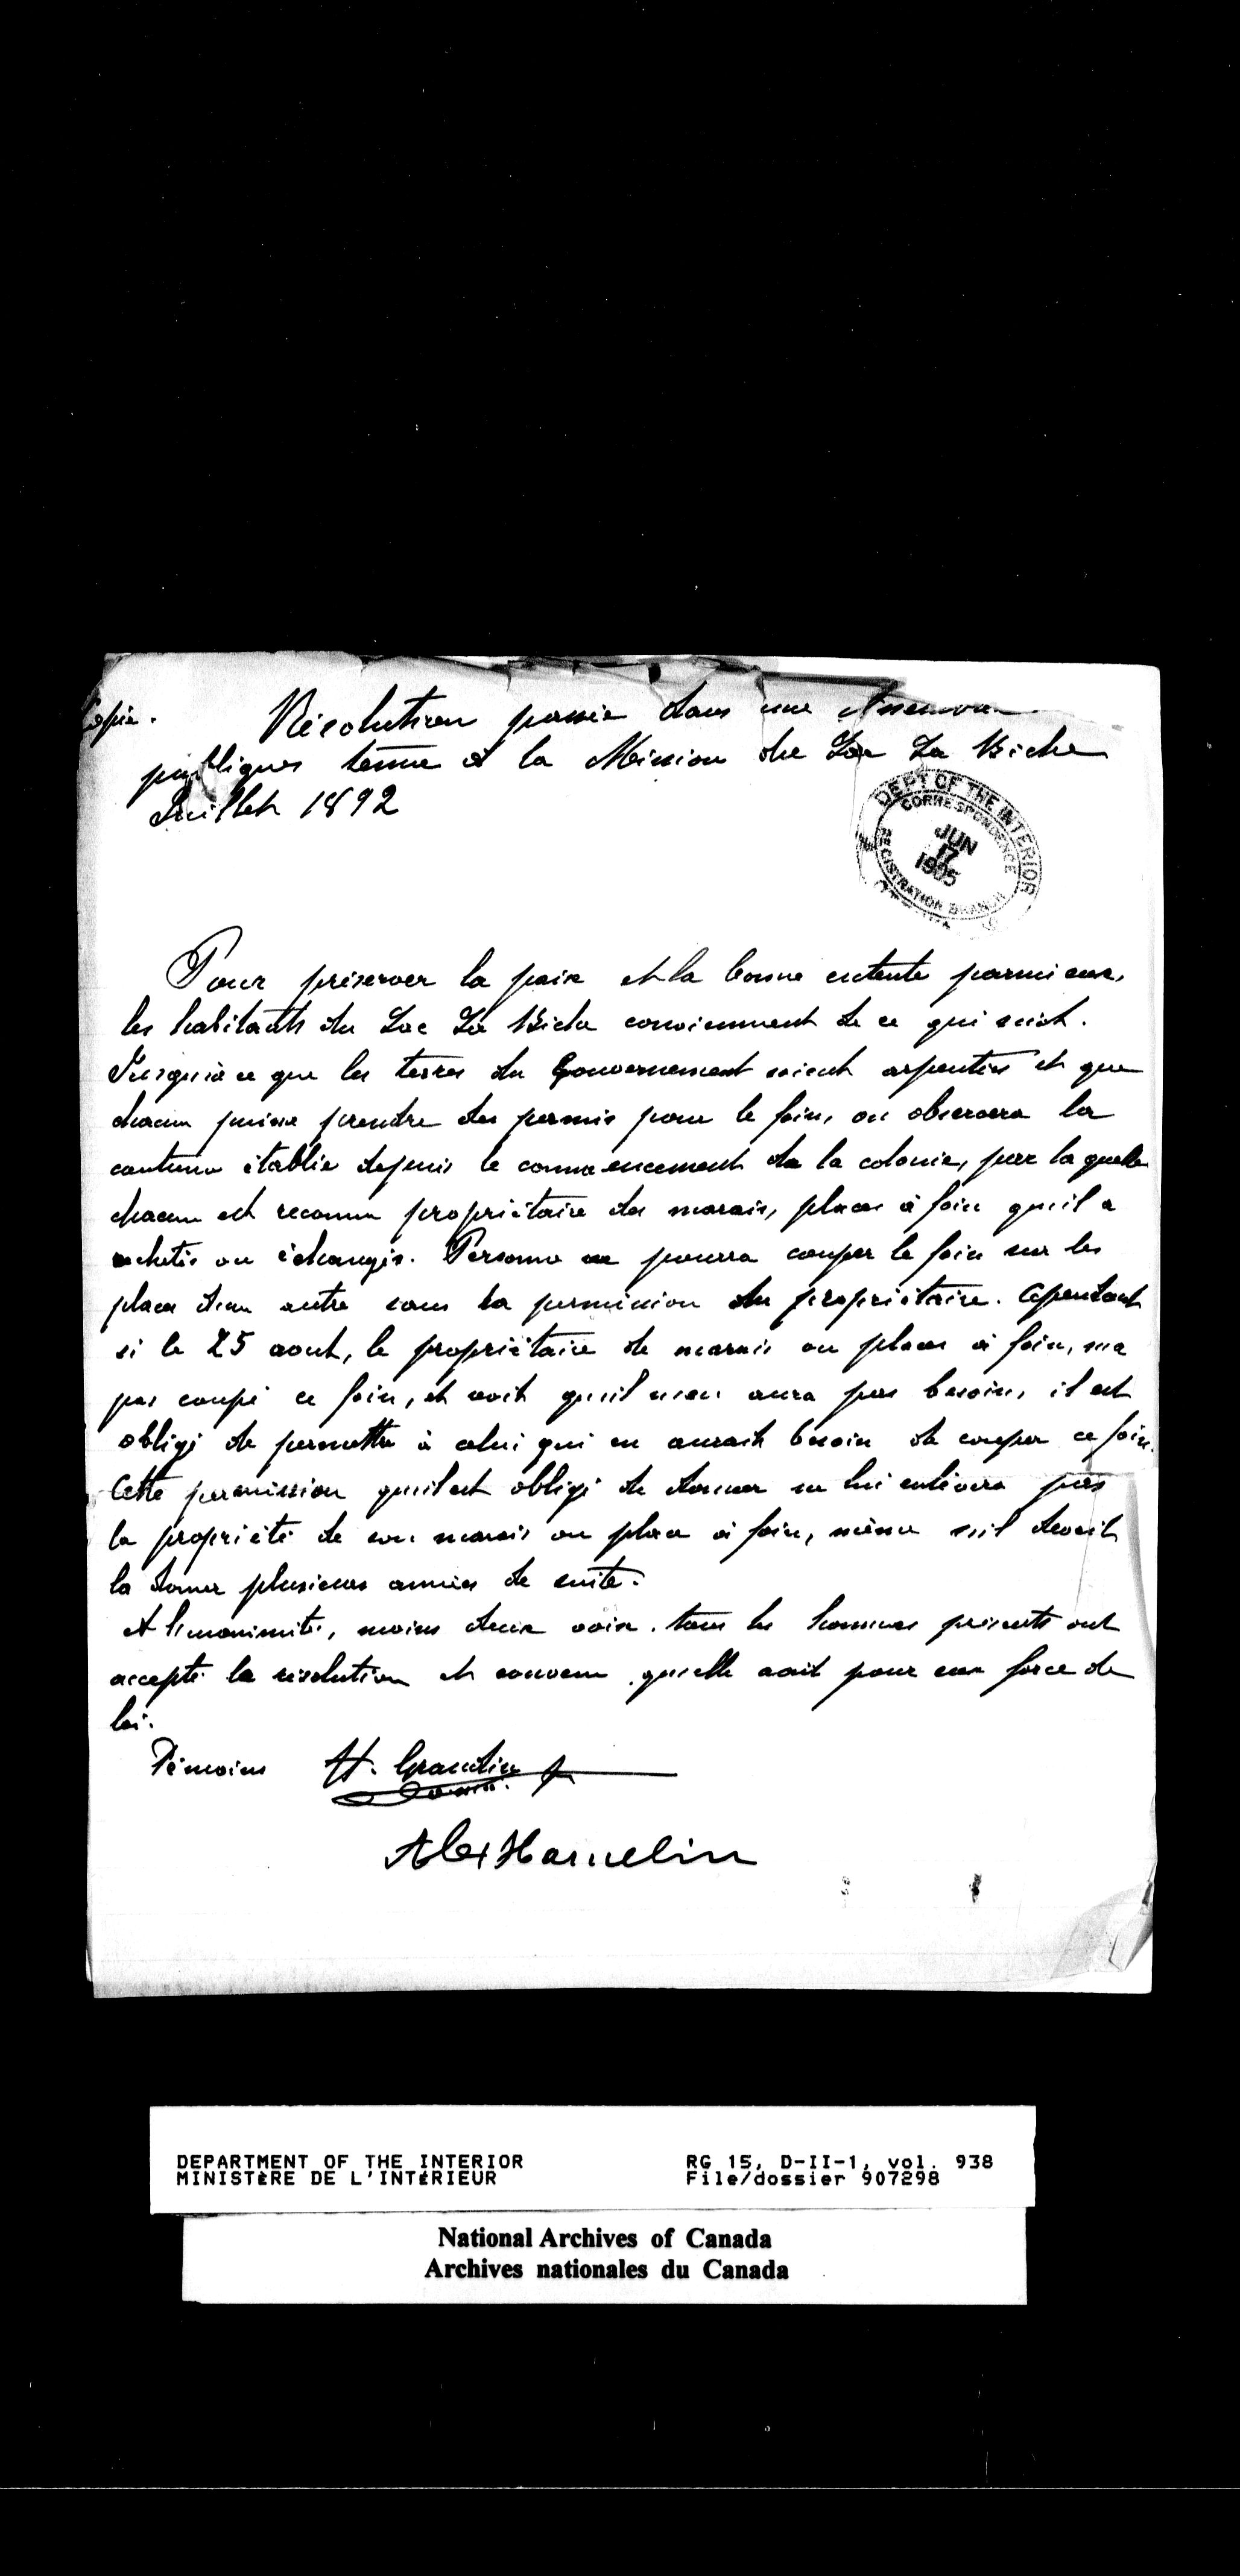 Copie.
Résolution passée dans une
publiques tenue à la Mission du Lac La Biche
Juillet 1892
DEPT OF THE INTERIOR
CORRESPONDENCE
JUN
17
1905
REGISTRATION BRANCH
Pour préserver la paix et la bonne entente parmi eux,
les habitants du Lac La Biche conviennent de ce qui suit.
Jusqu'à ce que les terres du Gouvernement soient arpentées et que
chacun puisse prendre des permis pour le foin, on observera la
coutume établie depuis le commencement de la colonie, par la quelle
chacun est reconnu propriétaire des marais, places à foin qu'il a
achetés ou échangés. Personne ne pourra couper le foin sur les
places d'un autre sans la permission du propriétaire. Cependant
si le 25 aout, le propriétaire de marais ou places à foin, n'a
pas coupé ce foin, et voit qu'il n'en aura pas besoin, il est
obligé de permettre à celui qui en aurait besoin de couper ce foin.
Cette permission qu'il est obligé de donner ne lui enlèvera pas
la propriété de son marais ou place à foin, même s'il devait
la donner plusieurs années de suite.
A l'unanimité, moins deux voix. tous les hommes présents ont
accepté la résolution et convenu qu'elle aait pour eux force de
loi.
Témoins H. Grandin
Alex Hamelin
DEPARTMENT OF THE INTERIOR RG 15, D-II-1, vol. 938
MINISTÈRE DE L'INTÉRIEUR File/dossier 907298
National Archives of Canada
Archives nationales du Canada